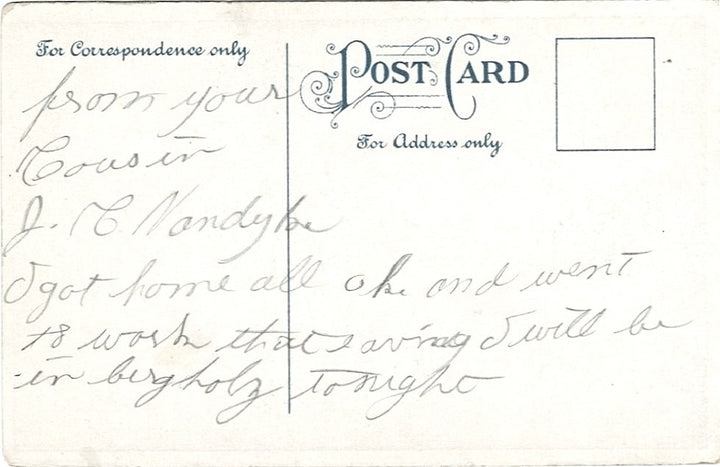 For Correspondence only
POST CARD
For Address only
from your
Cousin
J. C Vandyke
I got home all oke and went
to work that I will be
in bergholz tonight